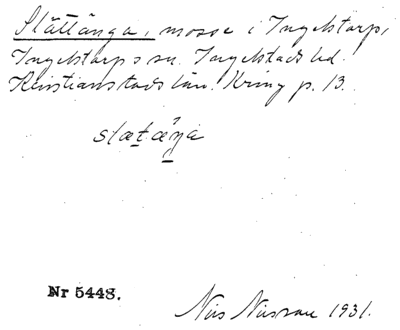 Slättänga, mosse i Ingelstorp,
Ingelstorps sn. Ingelstads hd.
Kristianstads län. Kring p. 13.
slætæŋa
Nr 5448.
Nils Nilsson 1931.